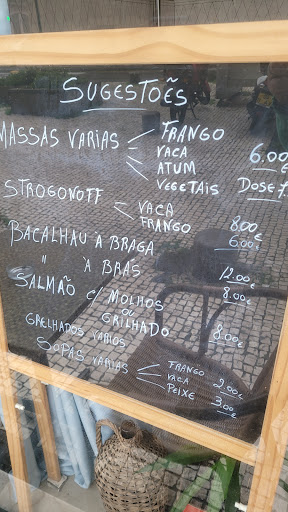 SUGESTOẼS
MASSAS VARIAS FRANGO
VACA
ATUM 6.00€
VEGETAIS Dose
STROGONOFF VACA 8.00€
FRANGO 6.00€
BACALHAU À BRAGA 12.00€
" À BRÁS 8.00€
SALMÃO C/ MOLHOS
OU
GRILHADO 8.00€
GRELHADOS VARIOS
SOPAS VARIAS FRANGO 2.00€
VACA
PEIXE 3.00€